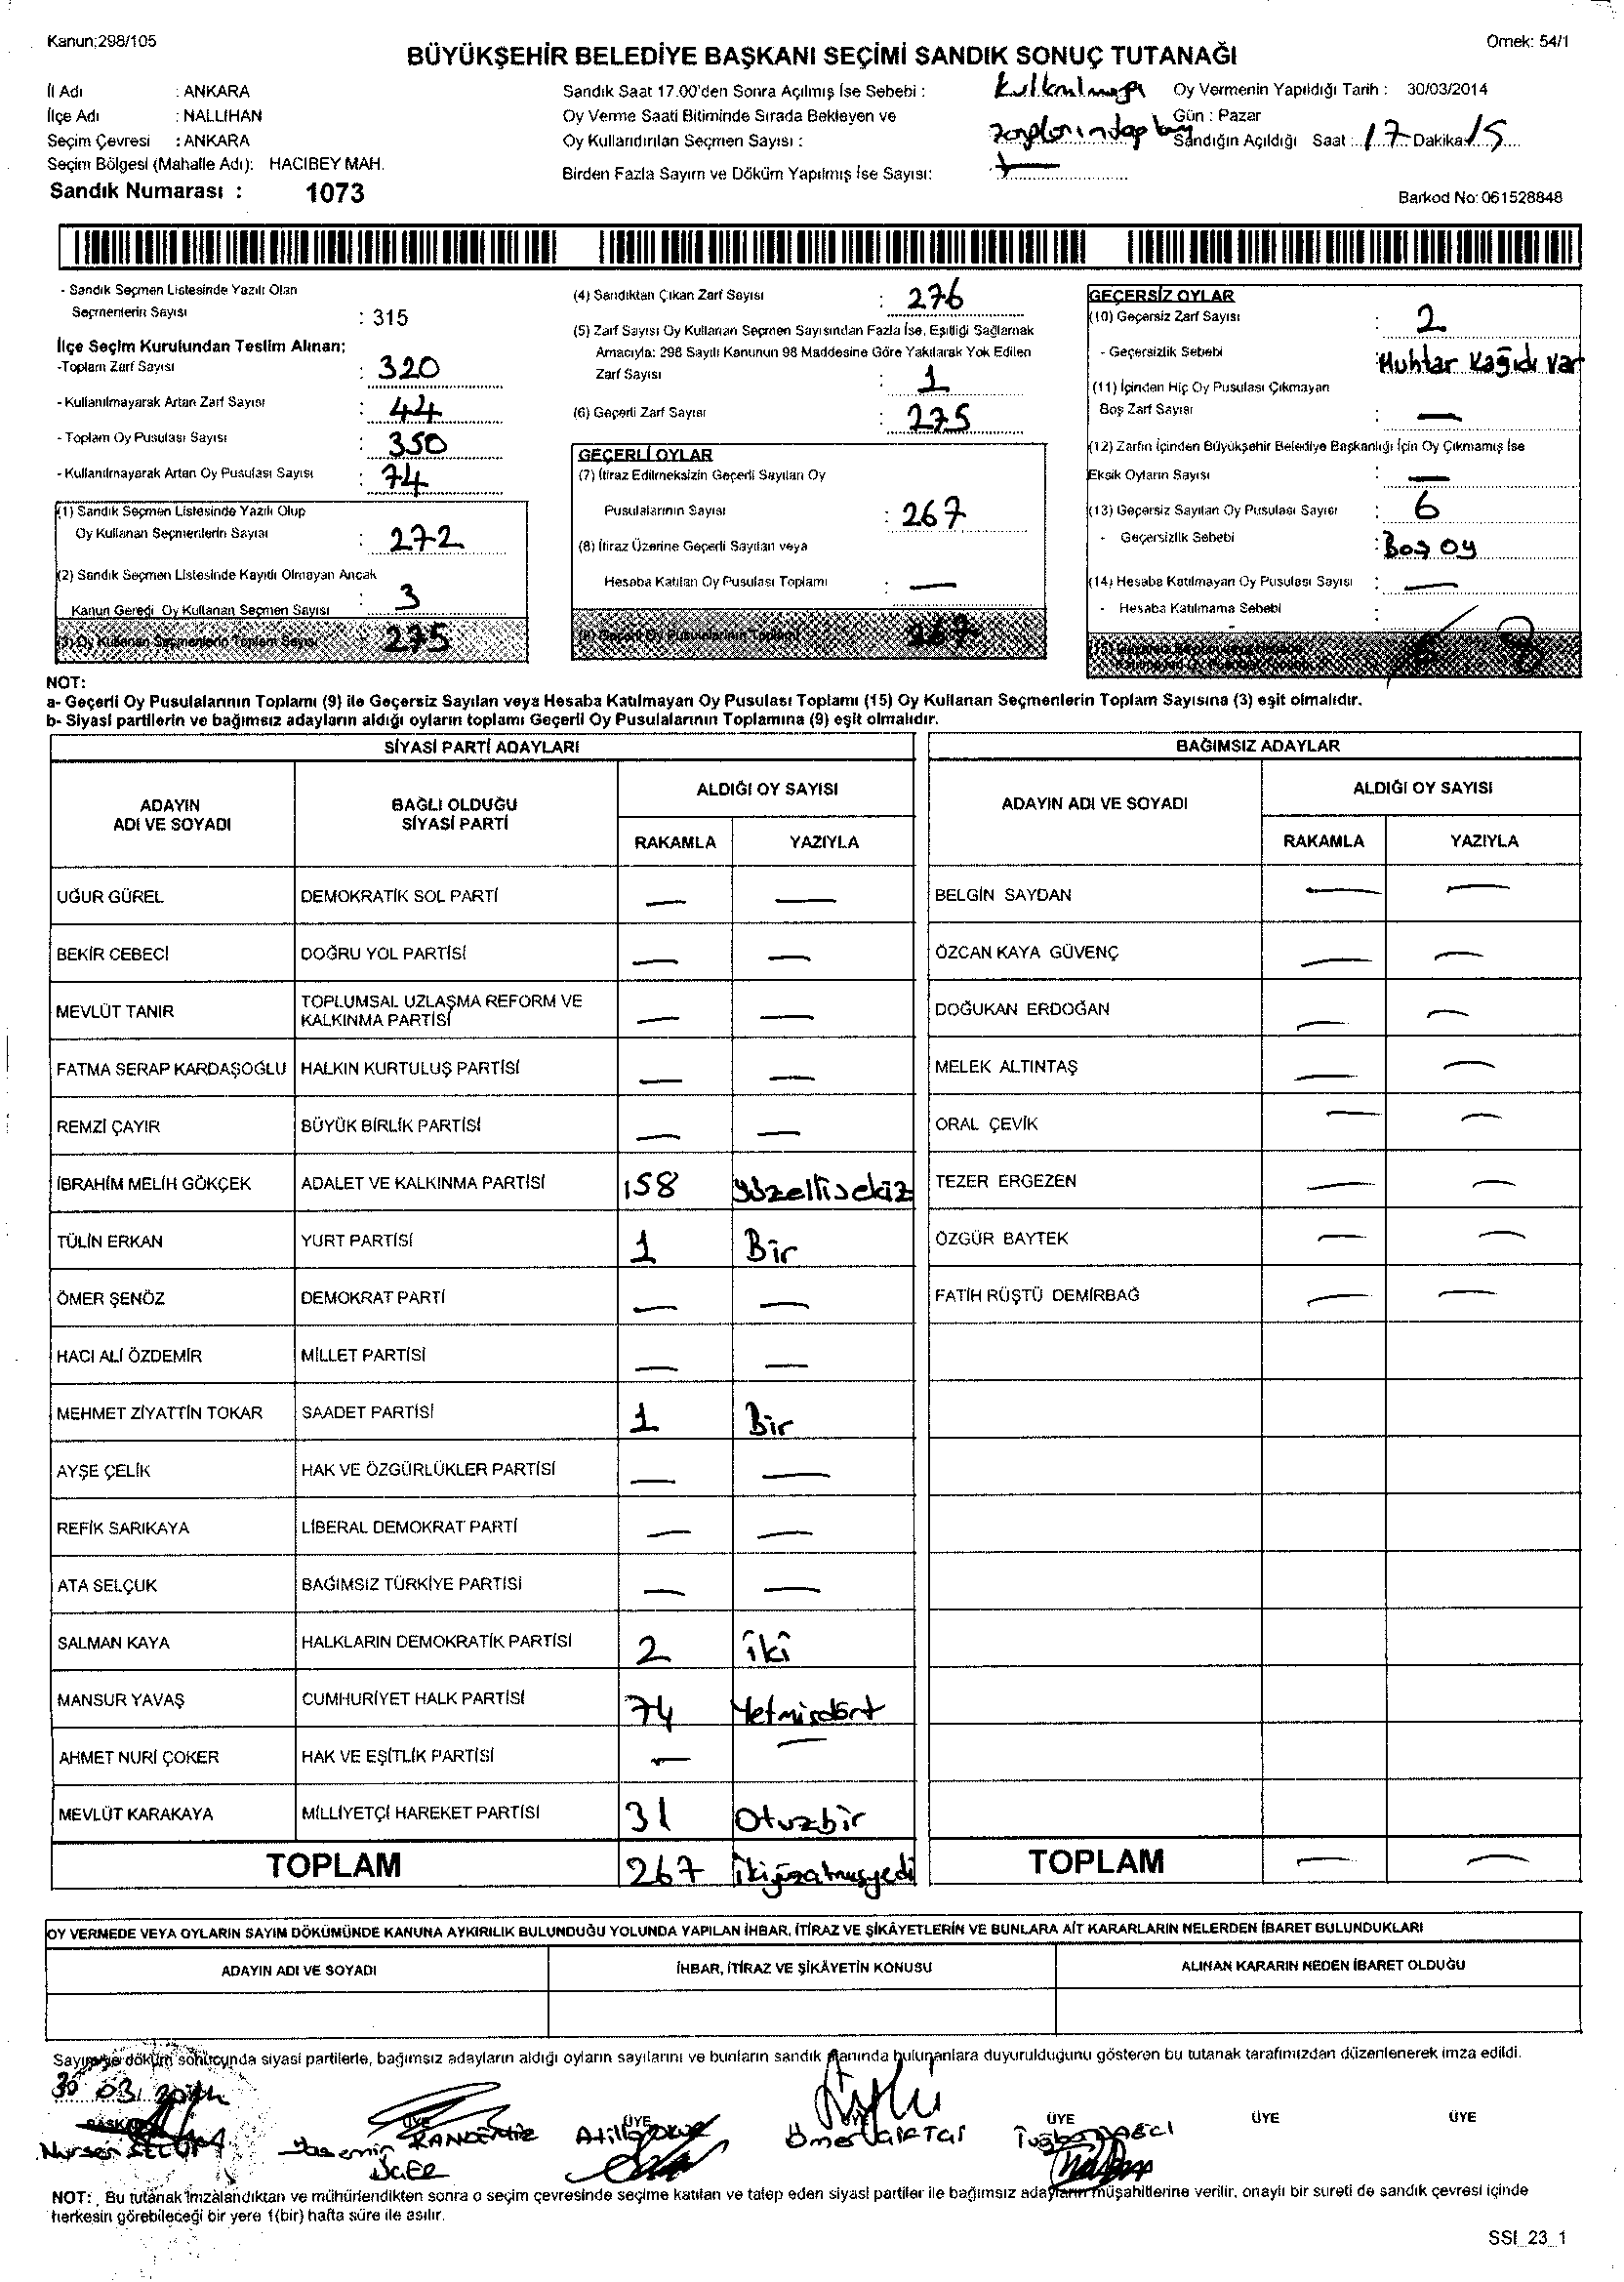 Kanun:298/105
Örnek: 54/1
BÜYÜKŞEHİR BELEDİYE BAŞKANI SEÇİMİ SANDIK SONUÇ TUTANAĞI
İl Adı : ANKARA
İlçe Adı : NALLIHAN
Seçim Çevresi : ANKARA
Seçim Bölgesi (Mahalle Adı): HACIBEY MAH.
Sandık Numarası : 1073
Sandık Saat 17.00'den Sonra Açılmış İse Sebebi :
Oy Verme Saati Bitiminde Sırada Bekleyen ve
Oy Kullandırılan Seçmen Sayısı :
Birden Fazla Sayım ve Döküm Yapılmış İse Sayısı:
Oy Vermenin Yapıldığı Tarih : 30/03/2014
Gün : Pazar
Sandığın Açıldığı Saat : 17 Dakika 15
Barkod No: 061528848
- Sandık Seçmen Listesinde Yazılı Olan
Seçmenlerin Sayısı : 315
İlçe Seçim Kurulundan Teslim Alınan;
-Toplam Zarf Sayısı : 320
- Kullanılmayarak Artan Zarf Sayısı : 44
- Toplam Oy Pusulası Sayısı : 350
- Kullanılmayarak Artan Oy Pusulası Sayısı : 74
(1) Sandık Seçmen Listesinde Yazılı Olup
Oy Kullanan Seçmenlerin Sayısı : 272
(2) Sandık Seçmen Listesinde Kayıtlı Olmayan Ancak
Kanun Gereği Oy Kullanan Seçmen Sayısı : 3
(3) Oy Kullanan Seçmenlerin Toplam Sayısı 275
(4) Sandıktan Çıkan Zarf Sayısı : 276
(5) Zarf Sayısı Oy Kullanan Seçmen Sayısından Fazla İse, Eşitliği Sağlamak
Amacıyla: 298 Sayılı Kanunun 98 Maddesine Göre Yakılarak Yok Edilen
Zarf Sayısı : 1
(6) Geçerli Zarf Sayısı : 275
GEÇERLİ OYLAR
(7) İtiraz Edilmeksizin Geçerli Sayılan Oy
Pusulalarının Sayısı : 267
(8) İtiraz Üzerine Geçerli Sayılan veya
Hesaba Katılan Oy Pusulası Toplamı : —
(9) Geçerli Oy Pusulalarının Toplamı 267
GEÇERSİZ OYLAR
(10) Geçersiz Zarf Sayısı : 2
- Geçersizlik Sebebi : Muhtar Kağıdı var
(11) İçinden Hiç Oy Pusulası Çıkmayan
Boş Zarf Sayısı : —
(12) Zarfın İçinden Büyükşehir Belediye Başkanlığı İçin Oy Çıkmamış İse
Eksik Oyların Sayısı : —
(13) Geçersiz Sayılan Oy Pusulası Sayısı : 6
- Geçersizlik Sebebi : Boş oy
(14) Hesaba Katılmayan Oy Pusulası Sayısı : —
- Hesaba Katılmama Sebebi :
8
NOT:
a- Geçerli Oy Pusulalarının Toplamı (9) ile Geçersiz Sayılan veya Hesaba Katılmayan Oy Pusulası Toplamı (15) Oy Kullanan Seçmenlerin Toplam Sayısına (3) eşit olmalıdır.
b- Siyasi partilerin ve bağımsız adayların aldığı oyların toplamı Geçerli Oy Pusulalarının Toplamına (9) eşit olmalıdır.
SİYASİ PARTİ ADAYLARI
ADAYIN ADI VE SOYADI BAĞLI OLDUĞU SİYASİ PARTİ ALDIĞI OY SAYISI
RAKAMLA YAZIYLA
UĞUR GÜREL DEMOKRATİK SOL PARTİ — —
BEKİR CEBECİ DOĞRU YOL PARTİSİ — —
MEVLÜT TANIR TOPLUMSAL UZLAŞMA REFORM VE KALKINMA PARTİSİ — —
FATMA SERAP KARDAŞOĞLU HALKIN KURTULUŞ PARTİSİ — —
REMZİ ÇAYIR BÜYÜK BİRLİK PARTİSİ — —
İBRAHİM MELİH GÖKÇEK ADALET VE KALKINMA PARTİSİ 158 Yüzellisekiz
TÜLİN ERKAN YURT PARTİSİ 1 Bir
ÖMER ŞENÖZ DEMOKRAT PARTİ — —
HACI ALİ ÖZDEMİR MİLLET PARTİSİ — —
MEHMET ZİYATTİN TOKAR SAADET PARTİSİ 1 Bir
AYŞE ÇELİK HAK VE ÖZGÜRLÜKLER PARTİSİ — —
REFİK SARIKAYA LİBERAL DEMOKRAT PARTİ — —
ATA SELÇUK BAĞIMSIZ TÜRKİYE PARTİSİ — —
SALMAN KAYA HALKLARIN DEMOKRATİK PARTİSİ 2 iki
MANSUR YAVAŞ CUMHURİYET HALK PARTİSİ 74 Yetmişdört
AHMET NURİ ÇOKER HAK VE EŞİTLİK PARTİSİ — —
MEVLÜT KARAKAYA MİLLİYETÇİ HAREKET PARTİSİ 31 Otuzbir
TOPLAM 267 İkiyüzatmışyedi
BAĞIMSIZ ADAYLAR
ADAYIN ADI VE SOYADI ALDIĞI OY SAYISI
RAKAMLA YAZIYLA
BELGİN SAYDAN — —
ÖZCAN KAYA GÜVENÇ — —
DOĞUKAN ERDOĞAN — —
MELEK ALTINTAŞ — —
ORAL ÇEVİK — —
TEZER ERGEZEN — —
ÖZGÜR BAYTEK — —
FATİH RÜŞTÜ DEMİRBAĞ — —
TOPLAM — —
OY VERMEDE VEYA OYLARIN SAYIM DÖKÜMÜNDE KANUNA AYKIRILIK BULUNDUĞU YOLUNDA YAPILAN İHBAR, İTİRAZ VE ŞİKÂYETLERİN VE BUNLARA AİT KARARLARIN NELERDEN İBARET BULUNDUKLARI
ADAYIN ADI VE SOYADI İHBAR, İTİRAZ VE ŞİKÂYETİN KONUSU ALINAN KARARIN NEDEN İBARET OLDUĞU
Sayım ve döküm sonucunda siyasi partilerle, bağımsız adayların aldığı oyların sayılarını ve bunların sandık alanında bulunanlara duyurulduğunu gösteren bu tutanak tarafımızdan düzenlenerek imza edildi.
30 03 2014
BAŞKAN ÜYE ÜYE ÜYE ÜYE ÜYE ÜYE
Yasemin
Ömer
Tuğba
NOT: Bu tutanak imzalandıktan ve mühürlendikten sonra o seçim çevresinde seçime katılan ve talep eden siyasi partiler ile bağımsız adayların müşahitlerine verilir, onaylı bir sureti de sandık çevresi içinde
herkesin görebileceği bir yere 1(bir) hafta süre ile asılır.
SSI_23_1